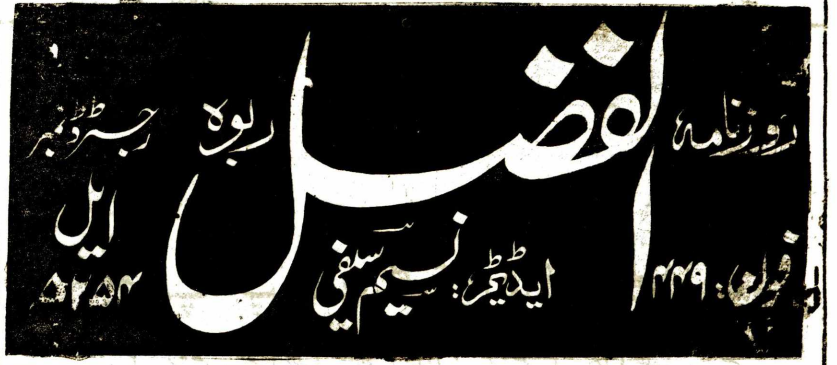 روزنامہ الفضل ربوہ رجسٹرڈ نمبر
ایل
۵۲۵۴
ایڈیٹر: نسیم سیفی
فون: ۴۴۹